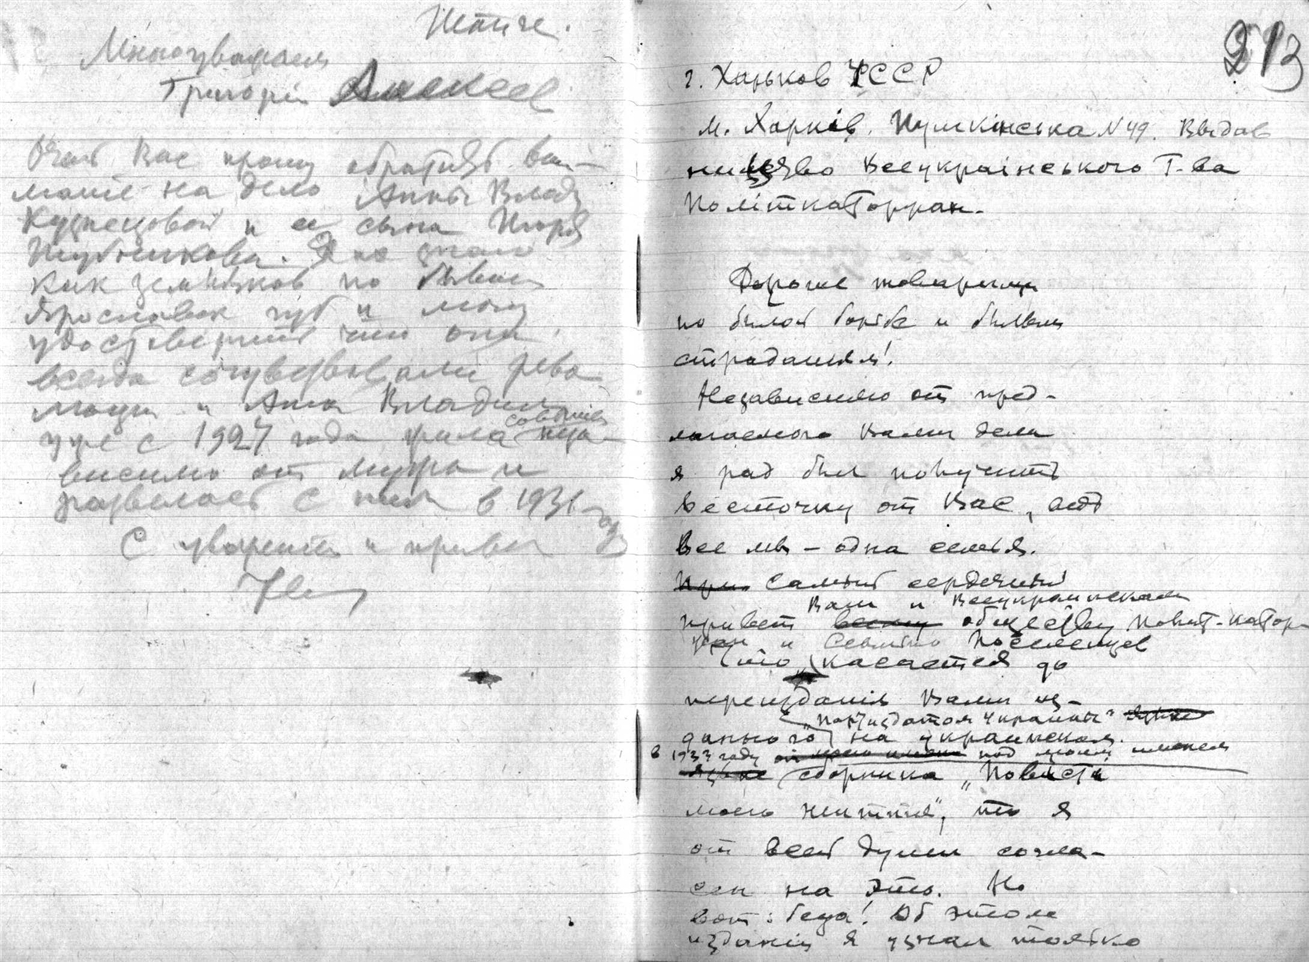 Многоуважаем
Григорий Алексее
Очень Вас прошу обратить вни-
мание на дело Анны Влад
Кузнецовой и ее сына Игоря
Шубникова. Я их знаю
как земляков по бывшей
Ярославск губ и могу
удостоверить что они
всегда сочувствовали рево-
люции и Анна Владим
уже с 1927 года жила совершен
неза-
висимо от мужа и
развелась с ним в 1931 году
С уважением и привет
213
г. Харьков УССР
м. Харків. Пушкінська N 49. Видав
ництво Всеукраінського Т-ва
Політкаторжан.
Дорогие товарищи
по былой борьбе и былым
страданиям!
Независимо от пред-
лагаемого Вами дела
я рад был получить
весточку от Вас, ведь
все мы – одна семья.
Самый сердечный
Вам и Всеукраинскому
привет всему обществу Полит-катор-
жан и Ссыльно Поселенцев
Что касается до
переиздания Вами из-
"Партиздатом Украины"
данного на украинском
в 1933 году под моим именем
сборника „Повiстi
моего життя", то я
от всей души согла-
сен на это. Но
вот беда! Об этом
издании я узнал только